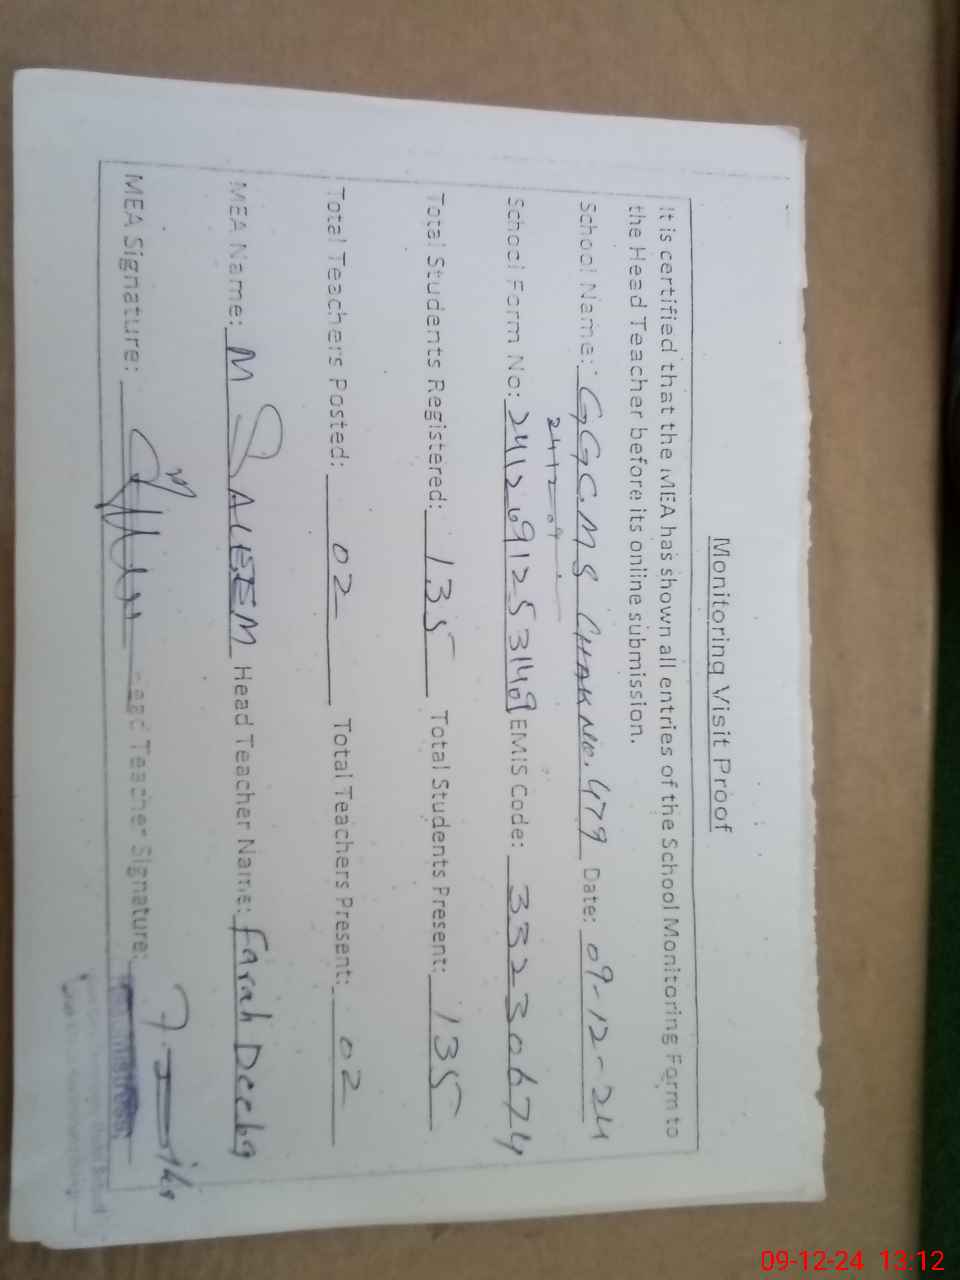 Monitoring Visit Proof
It is certified that the MEA has shown all entries of the School Monitoring Form to
the Head Teacher before its online submission.
School Name: GGCMS CHAK No. 479 Date: 09-12-24
241209
School Form No: EMIS Code: 33230674
Total Students Registered: 135 Total Students Present: 135
Total Teachers Posted: 02 Total Teachers Present: 02
MEA Name: M SALEEM Head Teacher Name: Farah Deeba
MEA Signature: Head Teacher Signature:
09-12-24 13:12